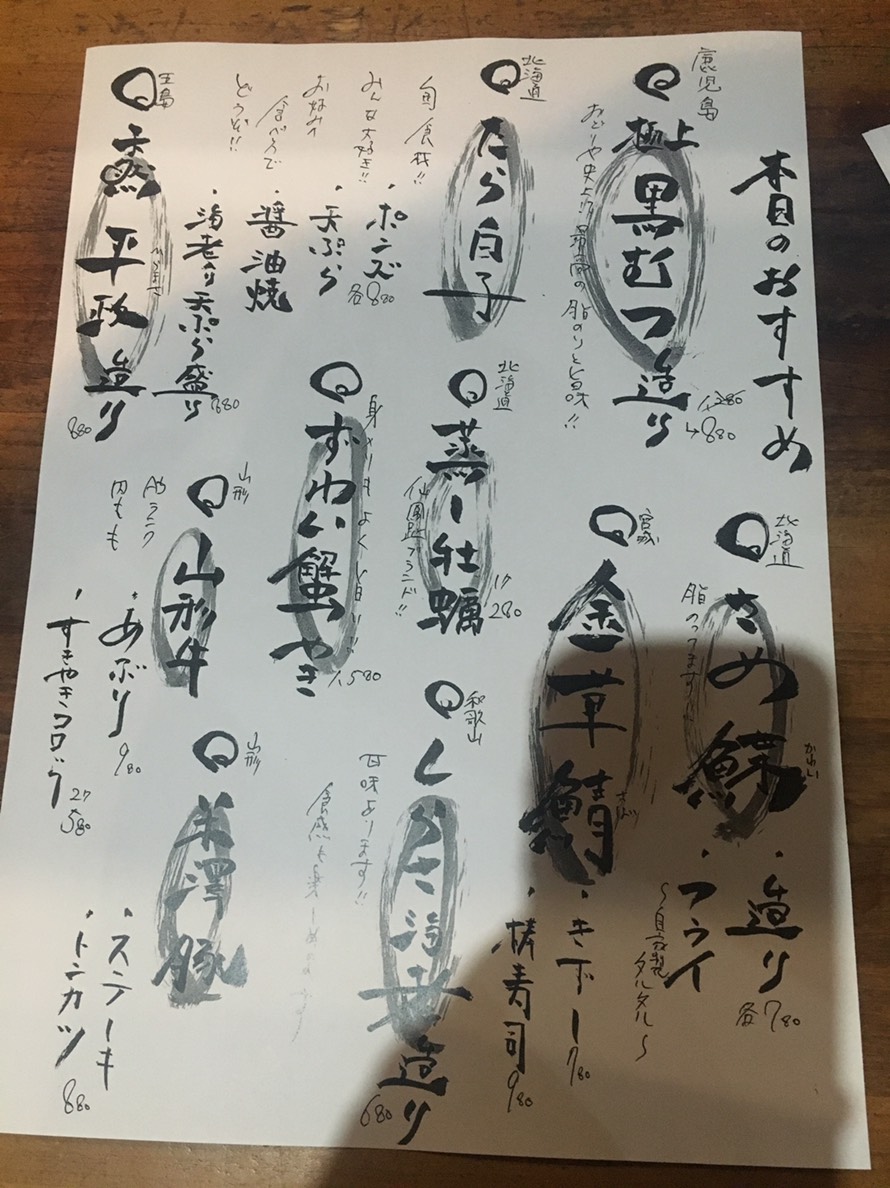 本日のおすすめ
鹿児島
極上
黒むつ造り
おどりや史上!? 最高の脂のりと旨味!!
1,280
↳880
北海道
たら白子
旬食材!!
みんな大好き!!
お好みの
食べ方で
どうぞ!!
・ポンズ
・天ぷら
各880
・醤油焼
・海老入り天ぷら盛り
880
天然
平政造り
ひらまさ
880
北海道
さめ鰈
かれい
脂のってます
・造り
・フライ
各780
〜自家製タルタル〜
宮城
金華鯖
さば
・きずし
780
・棒寿司
980
北海道
蒸し牡蠣
仙鳳趾ブランド!!
1ケ
280
ずわい蟹やき
身入りもよく旨い!!
1,580
和歌山
しらさ海老造り
甘味あります!!
680
山形
山形牛
A5ランク
内もも
・あぶり
980
・すきやきコロッケ
2ケ
580
山形
米澤豚
・ステーキ
・トンカツ
880